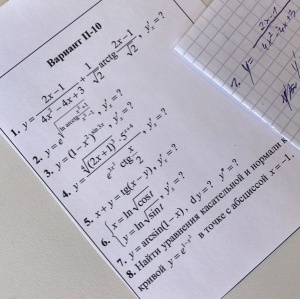 Вариант II-10
1. y = (2x-1)/(4x²-4x+3) + 1/√2 arctg (2x-1)/√2, y'ₓ = ?
3. y = (1-x²)
4. y = ⁴√((2x+1)³)·5ˣ⁺⁴ / (e²ˣ² ctg x/2), y'ₓ = ?
5. x + y = tg(x-y), y'ₓ = ?
6. { x = ln√cos t, y = ln√sin t, y'ₓ = ?
7. y = arcsin(1-x), dy = ?, y' = ?
8. Найти уравнения касательной и нормали к
кривой y = e¹⁻ˣ² в точке с абсциссой x = -1.
1. y = (2x-1)/(4x²-4x+3)